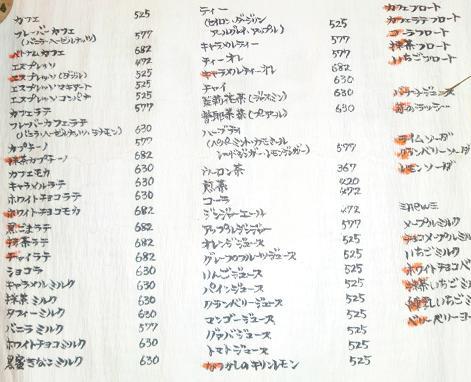 カフェ 525
フレーバーカフェ 577
(バニラ・ヘーゼルナッツ)
ベトナムカフェ 682
エスプレッソ 472
エスプレッソ(ダブル) 525
エスプレッソマキアート 525
エスプレッソコンパナ 577
カフェラテ 577
フレーバーカフェラテ 630
(バニラ・ヘーゼルナッツ・シナモン)
カプチーノ 577
抹茶カプチーノ 682
カフェモカ 630
キャラメルラテ 630
ホワイトチョコラテ 630
ホワイトチョコモカ 682
黒ごまラテ 682
抹茶ラテ 682
チャイラテ 682
ショコラ 630
キャラメルミルク 630
抹茶ミルク 630
タフィーミルク 630
バニラミルク 577
ホワイトチョコミルク 630
黒蜜きなこミルク 630
ティー 525
(セイロン・ダージリン
アールグレイ・アップル)
キャラメルティー 577
ティーオレ 577
キャラメルティーオレ 682
チャイ 630
茉莉花茶(ジャスミン) 630
普耶茶(プアール) 630
ハーブティ
(ペパーミント・カモミール
レッドジンガー・レモンジンガー) 577
ウーロン茶 367
煎茶 420
コーラ 472
ジンジャーエール 472
アップルジンジャー 577
オレンジジュース 525
グレープフルーツジュース 525
りんごジュース 525
パインジュース 525
クランベリージュース 525
マンゴージュース 525
グァバジュース 525
トマトジュース 525
なつかしのキリンレモン 525
カフェフロート
カフェラテフロート
コーラフロート
抹茶フロート
いちごフロート
バナナジュース
苺のラッシー
ライムソーダ
クランベリーソーダ
レモンソーダ
メープルミルク
チョコメープルミルク
いちごミルク
ホワイトチョコベ
抹茶いちごミ
練乳いちごミ
ベリーベリーヨー